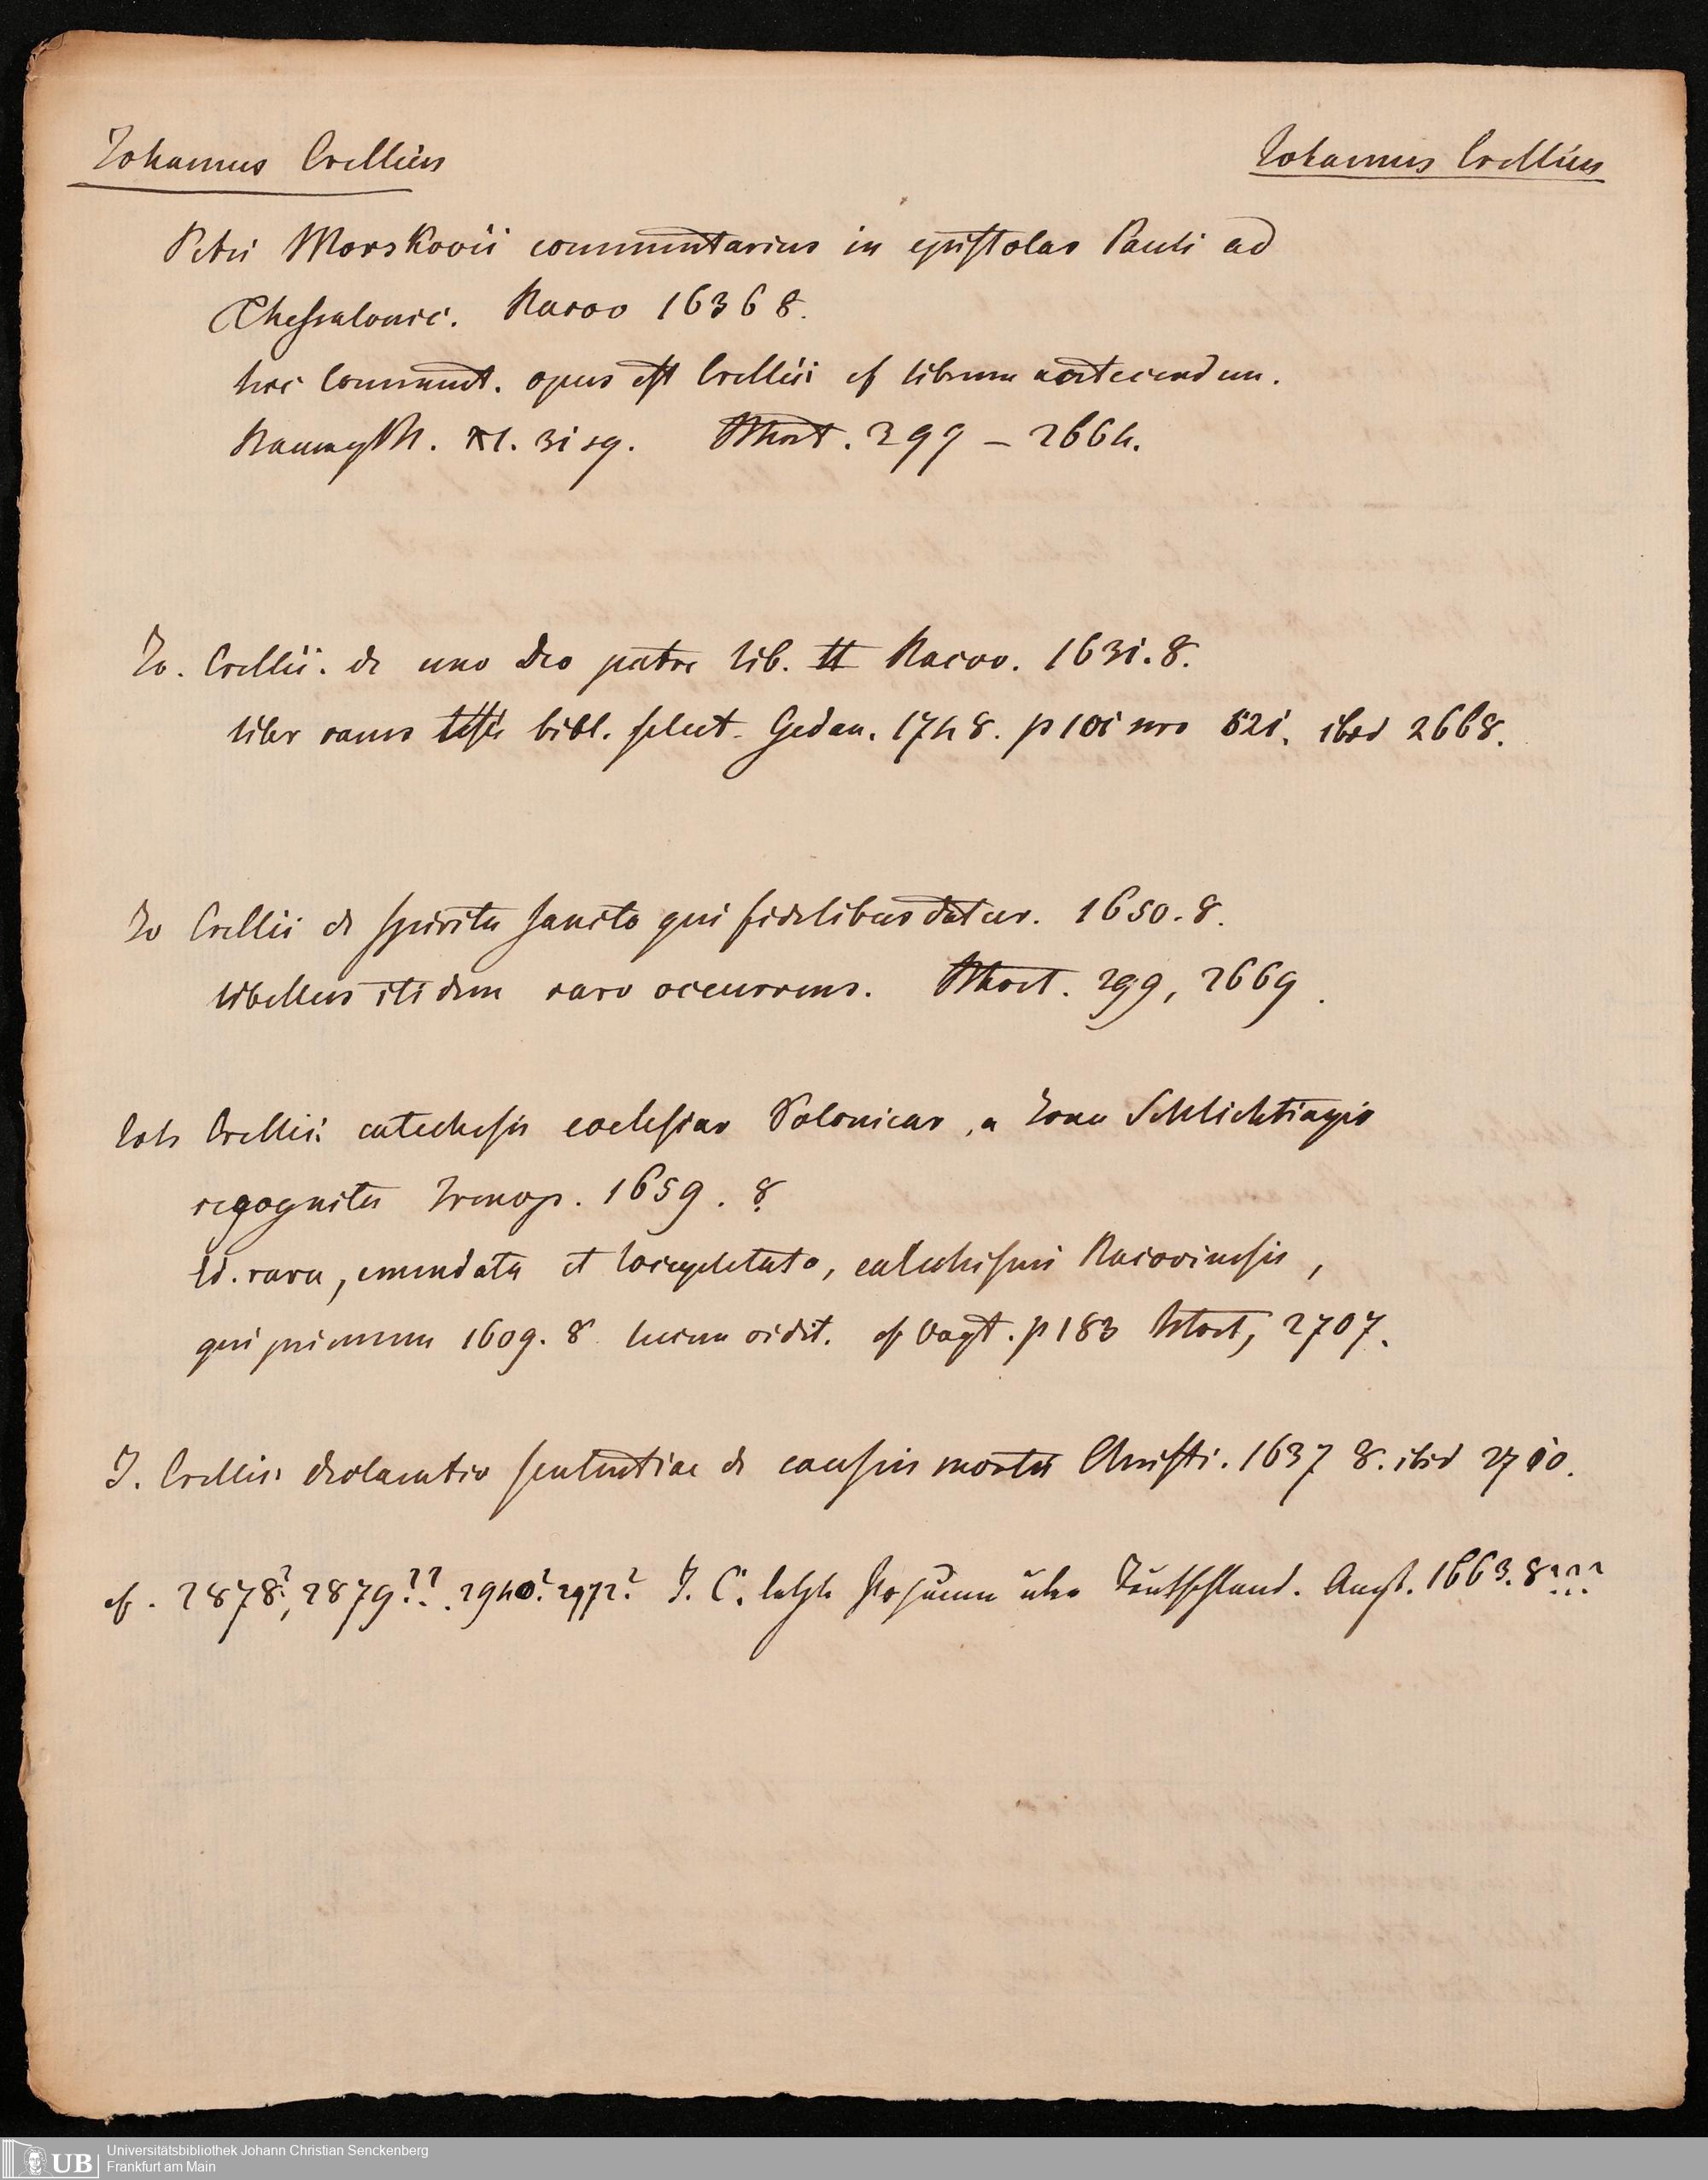 Johannes Crellius
Johannes Crellius
Petri Morskovii commentarius in epistolas Pauli ad
Thessalonic. Racov 1636 8.
hic Comment. opus est Crellii cf librum antecedem.
31 sq. 299 – 2664.
Jo. Crellii. de uno Deo patre lib. II Racov. 1631. 8.
liber rarus teste bibl. select. Gedan. 1748. p 101 nro 521. ibid 2668.
Jo Crellii de spiritu sancto qui fidelibus datur. 1650. 8.
libellus itidem raro occurrens. 299, 2669.
Joh Crellii catechesis ecclesiar Polonicar, a Jona Schlichtingio
recognita Irenop. 1659. 8
Ed. rara, emendata et locupletata, catechismi Racoviensis,
qui primum 1609. 8 lucem vidit. cf Vogt. p 183 2707.
J. Crellii declaratio sententiae de causis mortis Christi. 1637 8. ibid 2710.
cf. 2878?, 2879??. 2940? 2972? J. C. letzte Posaune über Deutschland. Amst. 1663. 8???
UB Universitätsbibliothek Johann Christian Senckenberg
Frankfurt am Main